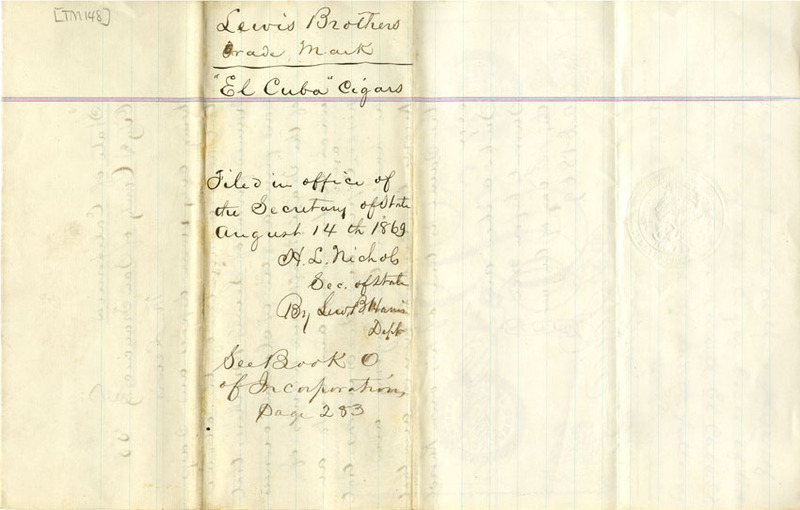 [TM148]
Lewis Brothers
Trade Mark
"El Cuba" Cigars
Filed in office of
the Secretary of State
August 14th 1869
H. L. Nichols
Sec. of State
By Lew. B Harris
Dept
See Book O
of Incorporations,
Page 283